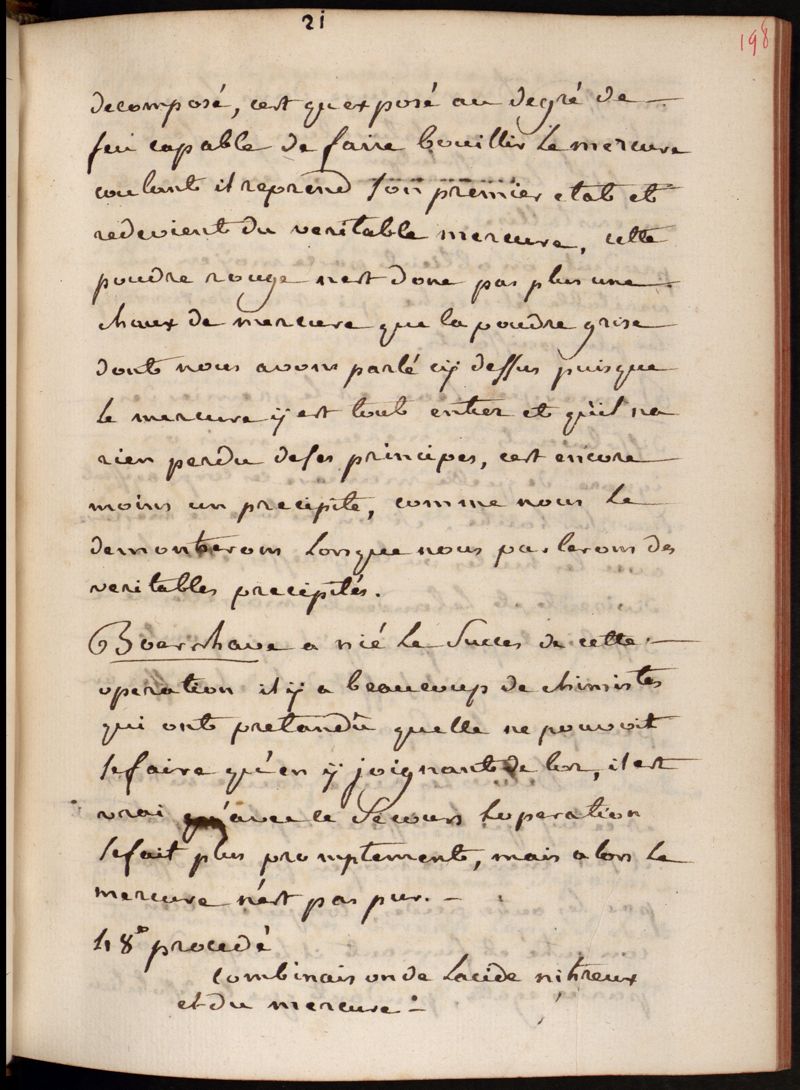 21
198
decomposé, cest quexposé au degré de
feu capable de faire bouillir le mercure
coulant il reprend son premier etat et
redevient du veritable mercure, cette
poudre rouge nest donc pas plus une
chaux de mercure que la poudre grise
dont nous avons parlé cÿ dessus puisque
le mercure ÿ est tout entier et qu'il na
rien perdu de ses principes, cest encore
moins un precipité, comme nous le
demonterons lorsque nous parlerons des
veritables precipités.
Boerrhave a nié le succes de cette
operation il ÿ a beaucoup de chimistes
qui ont pretandu quelle ne pouvoit
se faire qu'en ÿ joignant de lor, il est
vrai qu'avec ce secours loperation
se fait plus promptement, mais alors le
mercure n'est pas pur.
48e procedé
combinaison de lacide nitreux
et du mercure